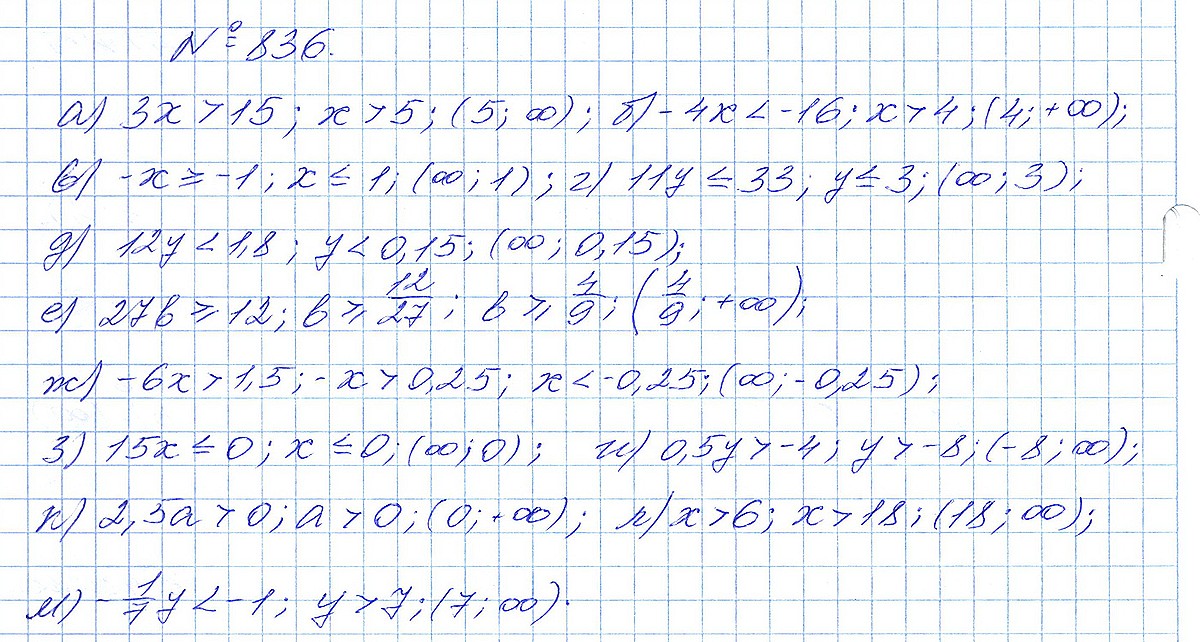 № 836.
а) 3x > 15; x > 5; (5; ∞); б) -4x < -16; x > 4; (4; +∞);
в) -x ≥ -1; x ≤ 1; (∞; 1); г) 11y ≤ 33; y ≤ 3; (∞; 3);
д) 12y < 1,8; y < 0,15; (∞; 0,15);
е) 27b ≥ 12; b ≥ 12/27; b ≥ 4/9; (4/9; +∞);
ж) -6x > 1,5; -x > 0,25; x < -0,25; (∞; -0,25);
з) 15x ≤ 0; x ≤ 0; (∞; 0); и) 0,5y > -4; y > -8; (-8; ∞);
к) 2,5a > 0; a > 0; (0; +∞); л) x > 6; x > 18; (18; ∞);
м) -1/7 y < -1; y > 7; (7; ∞).